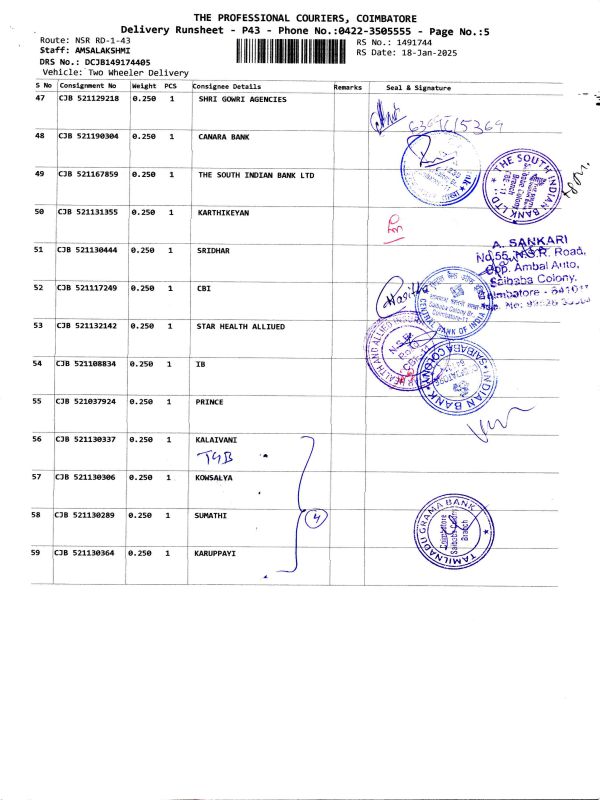 THE PROFESSIONAL COURIERS, COIMBATORE
Delivery Runsheet - P43 - Phone No.:0422-3505555 - Page No.:5
Route: NSR RD-1-43
RS No.: 1491744
Staff: AMSALAKSHMI
RS Date: 18-Jan-2025
DRS No.: DCJB149174405
Vehicle: Two Wheeler Delivery
S No Consignment No Weight PCS Consignee Details Remarks Seal & Signature
47 CJB 521129218 0.250 1 SHRI GOWRI AGENCIES
48 CJB 521190304 0.250 1 CANARA BANK
49 CJB 521167859 0.250 1 THE SOUTH INDIAN BANK LTD
THE SOUTH INDIAN BANK LTD.
50 CJB 521131355 0.250 1 KARTHIKEYAN
51 CJB 521130444 0.250 1 SRIDHAR
A. SANKARI
No.55, N.S.R. Road,
Opp. Ambal Auto,
Saibaba Colony,
52 CJB 521117249 0.250 1 CBI
CENTRAL BANK OF INDIA
53 CJB 521132142 0.250 1 STAR HEALTH ALLIUED
54 CJB 521108834 0.250 1 IB
INDIAN BANK
SAIBABA COLONY
55 CJB 521037924 0.250 1 PRINCE
56 CJB 521130337 0.250 1 KALAIVANI
TGB
57 CJB 521130306 0.250 1 KOWSALYA
58 CJB 521130289 0.250 1 SUMATHI
4
TAMILNADU GRAMA BANK
Coimbatore
Saibaba Colony
Branch
59 CJB 521130364 0.250 1 KARUPPAYI